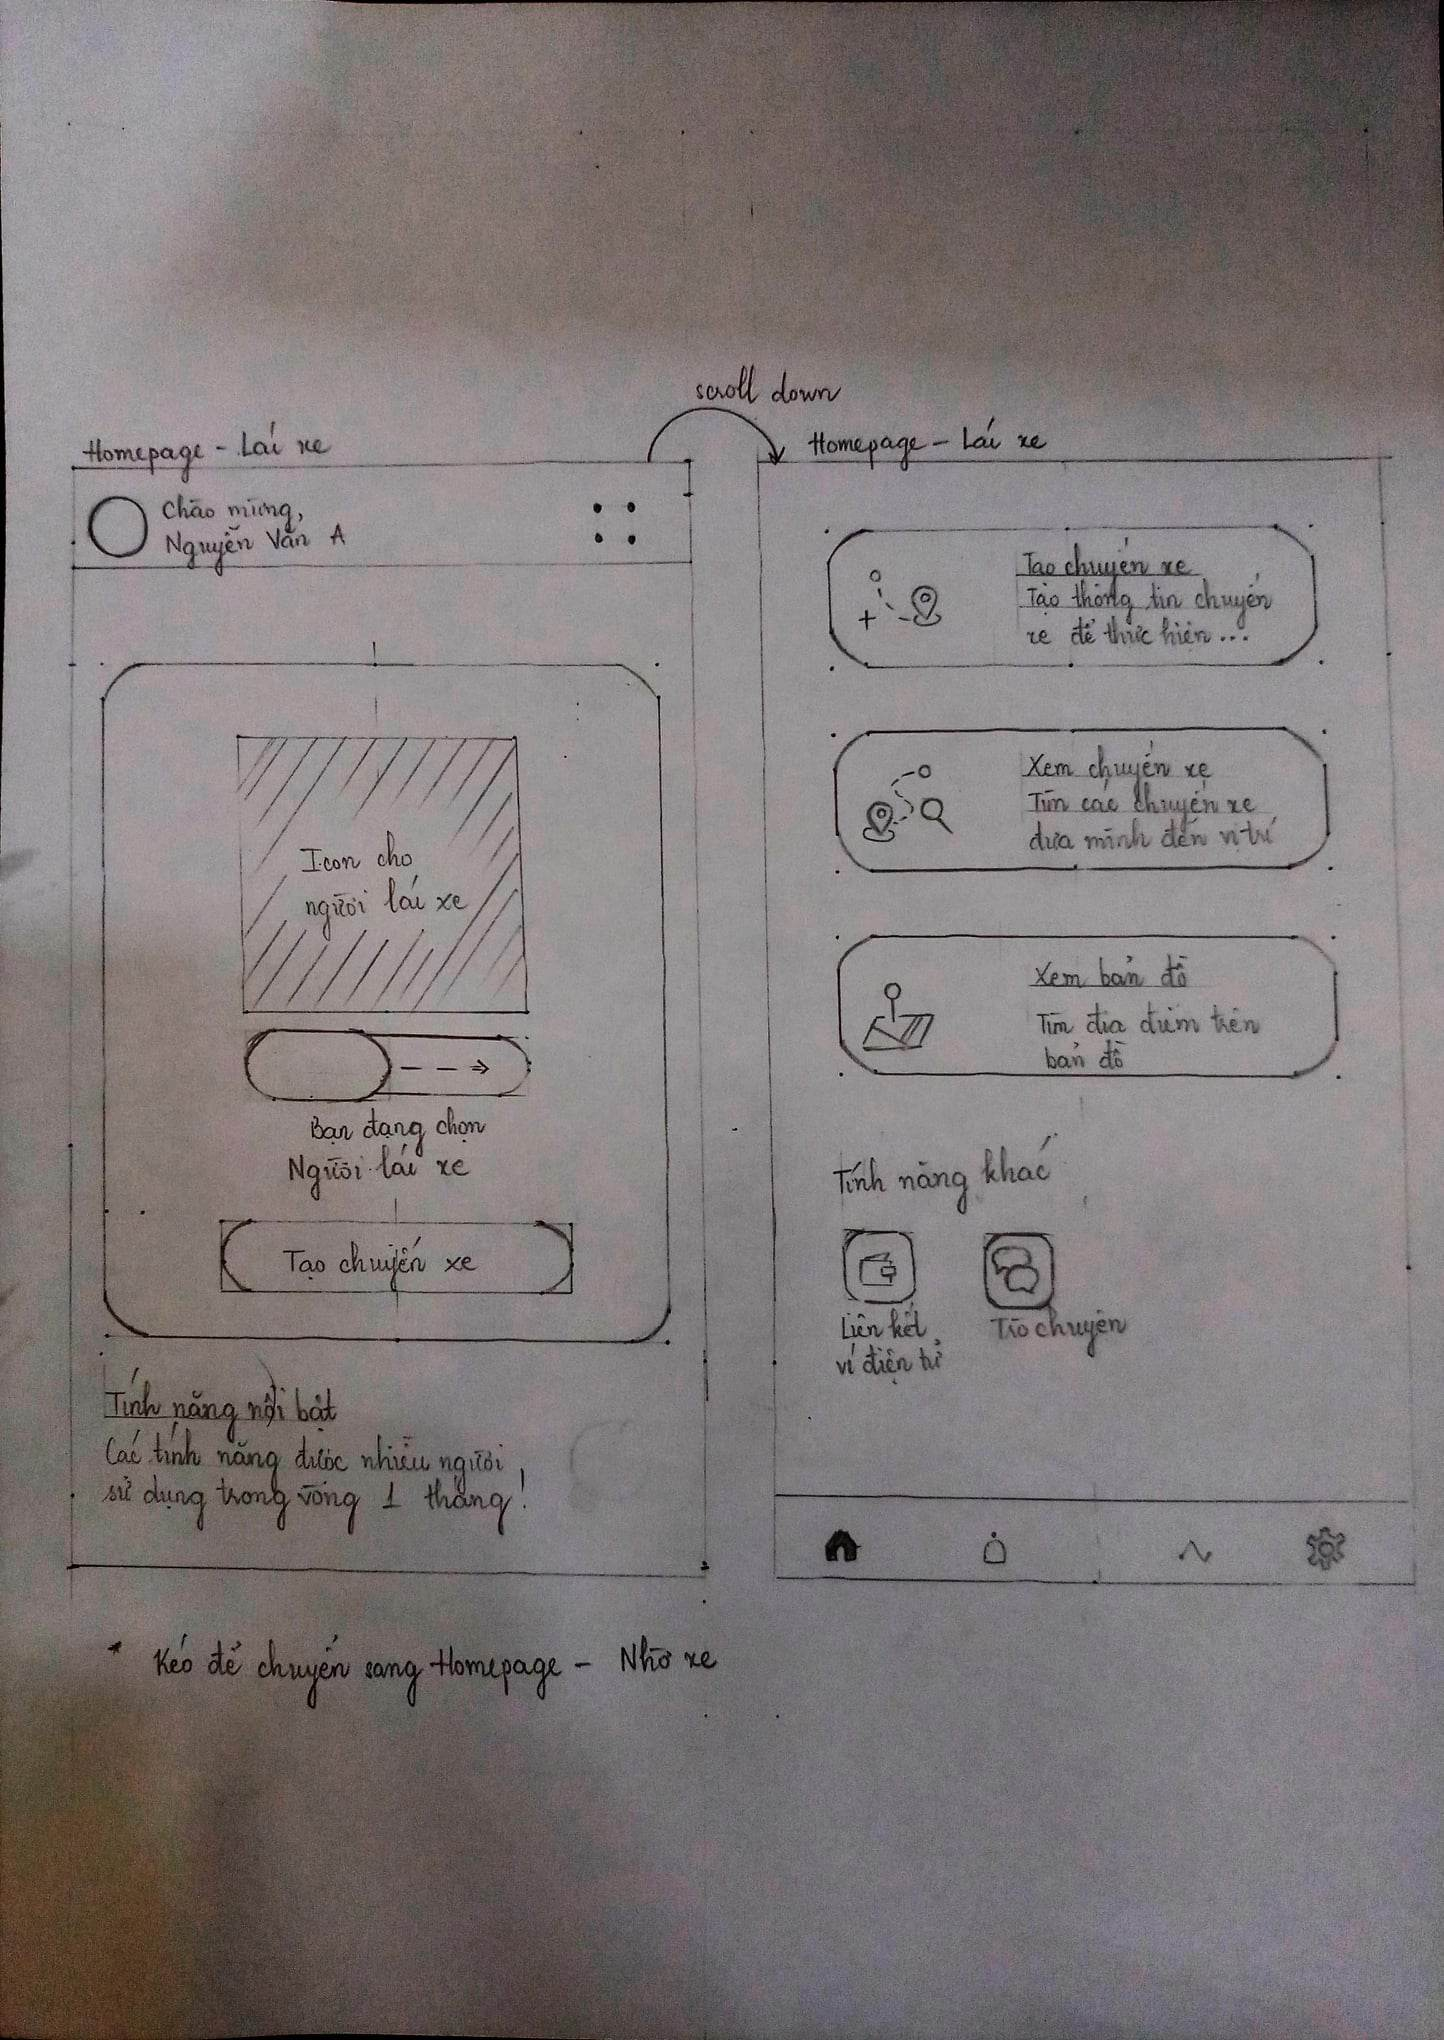 scroll down
Homepage - Lái xe
Chào mừng,
Nguyễn Văn A
Icon cho
người lái xe
Bạn đang chọn
Người lái xe
Tạo chuyến xe
Tính năng nổi bật
Các tính năng được nhiều người
sử dụng trong vòng 1 tháng!
Homepage - Lái xe
Tạo chuyến xe
Tạo thông tin chuyến
xe để thực hiện...
Xem chuyến xe
Tìm các chuyến xe
đưa mình đến vị trí
Xem bản đồ
Tìm địa điểm trên
bản đồ
Tính năng khác
Liên kết
ví điện tử
Trò chuyện
* Kéo để chuyển sang Homepage - Nhờ xe